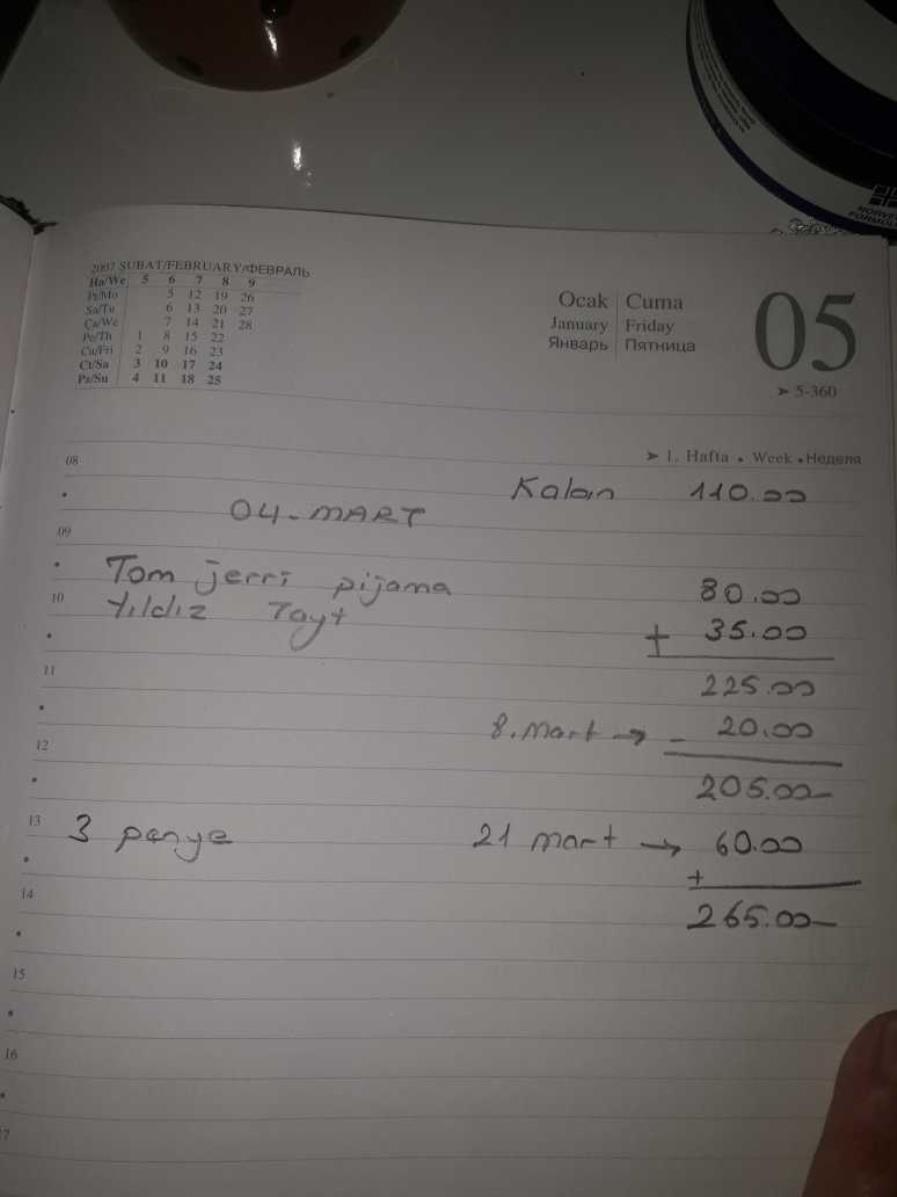 2007 ŞUBAT/FEBRUARY/ФЕВРАЛЬ
Ha/We 5 6 7 8 9
Pt/Mo 5 12 19 26
Sa/Tu 6 13 20 27
Ça/We 7 14 21 28
Pe/Th 1 8 15 22
Cu/Fri 2 9 16 23
Ct/Sa 3 10 17 24
Pa/Su 4 11 18 25
Ocak Cuma
January Friday
Январь Пятница
05
➤ 5-360
➤ 1. Hafta • Week • Неделя
08
Kalan 110.00
04-MART
09
Tom jerri pijama 80.00
10
Yıldız Tayt + 35.00
11
225.00
8.Mart → - 20.00
12
205.00
13
3 penye 21 mart → 60.00
+
14
265.00
15
16
17
NORVEÇ
FORMÜLÜ